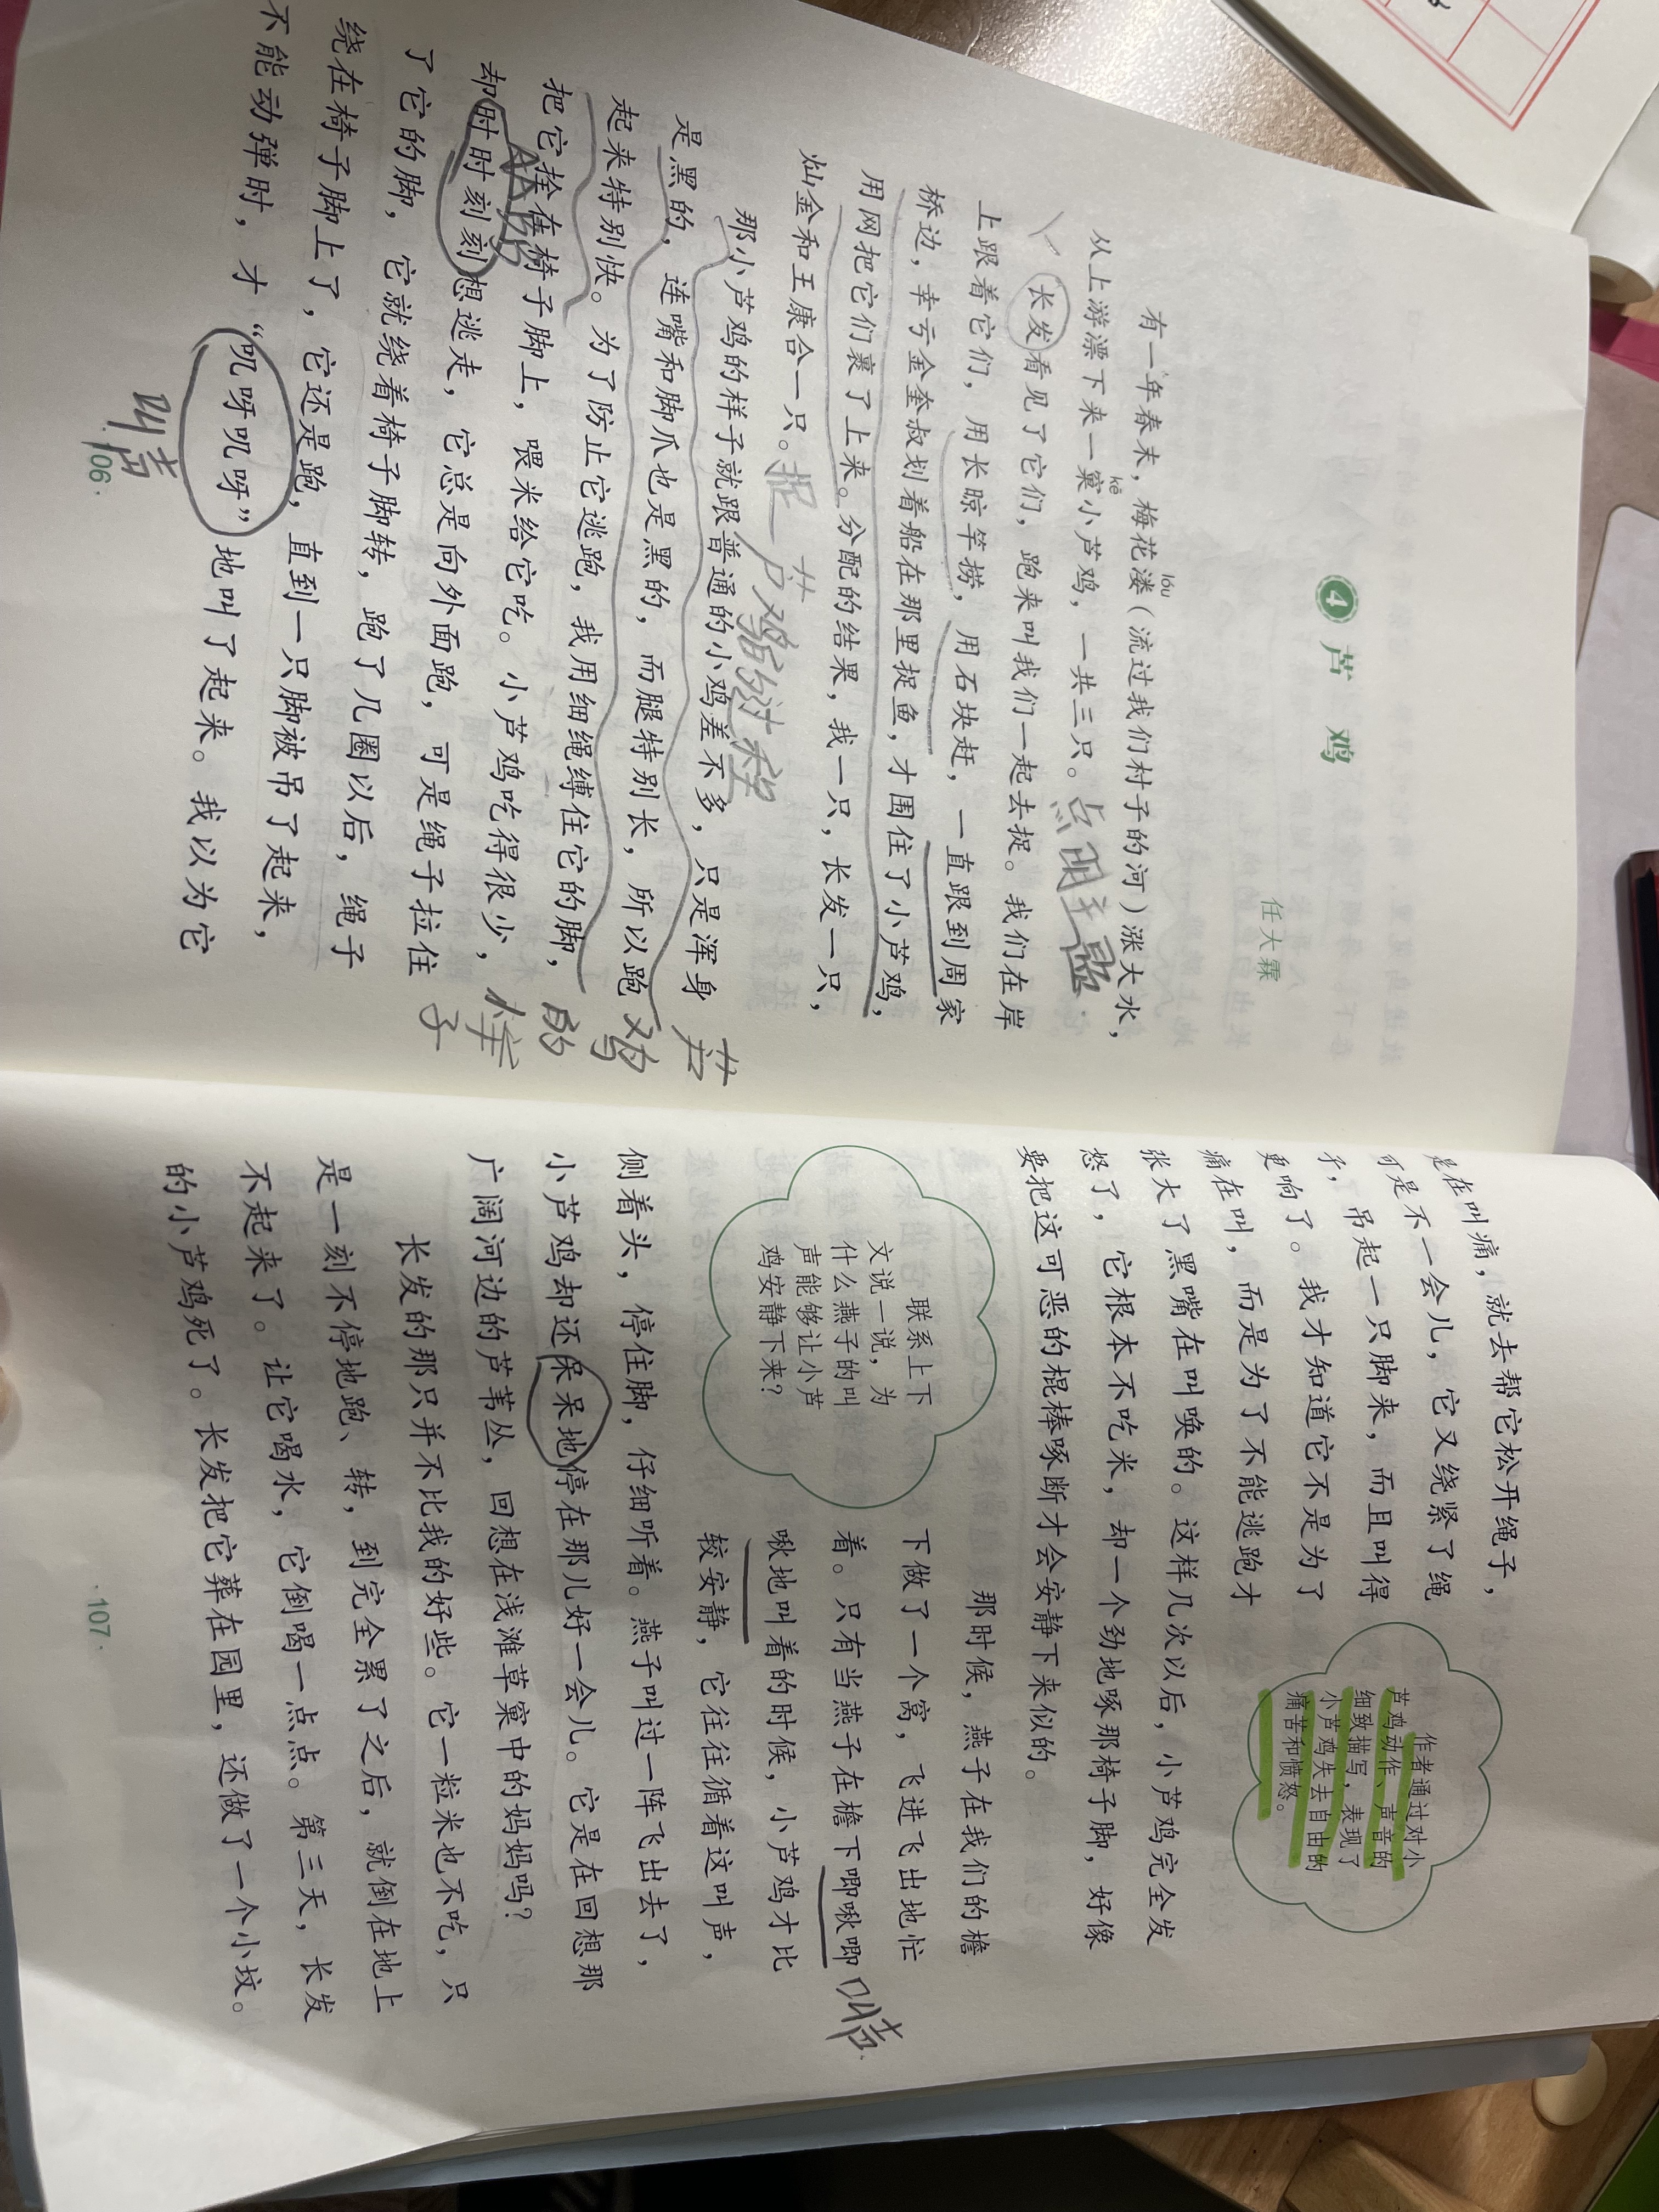 4 芦鸡
任大霖
有一年春末，梅花溇（流过我们村子的河）涨大水，
lóu
从上游漂下来一窠小芦鸡，一共三只。点明主题.
kē
长发看见了它们，跑来叫我们一起去捉。我们在岸
上跟着它们，用长晾竿捞，用石块赶，一直跟到周家
桥边，幸亏金奎叔划着船在那里捉鱼，才围住了小芦鸡，
用网把它们裹了上来。分配的结果，我一只，长发一只，
灿金和王康合一只。捉芦鸡的过程
那小芦鸡的样子就跟普通的小鸡差不多，只是浑身
是黑的，连嘴和脚爪也是黑的，而腿特别长，所以跑
起来特别快。为了防止它逃跑，我用细绳缚住它的脚，
把它拴在椅子脚上，喂米给它吃。小芦鸡吃得很少，
却时时刻刻想逃走，它总是向外面跑，可是绳子拉住
了它的脚，它就绕着椅子脚转，跑了几圈以后，绳子
绕在椅子脚上了，它还是跑，直到一只脚被吊了起来，
不能动弹时，才“叽呀叽呀”地叫了起来。我以为它
芦鸡的样子
AABB
叫声
·106·
是在叫痛，就去帮它松开绳子，
可是不一会儿，它又绕紧了绳
子，吊起一只脚来，而且叫得
更响了。我才知道它不是为了
痛在叫，而是为了不能逃跑才
张大了黑嘴在叫唤的。这样几次以后，小芦鸡完全发
怒了，它根本不吃米，却一个劲地啄那椅子脚，好像
要把这可恶的棍棒啄断才会安静下来似的。
作者通过对小
芦鸡动作、声音的
细致描写，表现了
小芦鸡失去自由的
痛苦和愤怒。
那时候，燕子在我们的檐
下做了一个窝，飞进飞出地忙
着。只有当燕子在檐下唧啾唧
啾地叫着的时候，小芦鸡才比
较安静，它往往循着这叫声，
叫声.
联系上下
文说一说，为
什么燕子的叫
声能够让小芦
鸡安静下来？
侧着头，停住脚，仔细听着。燕子叫过一阵飞出去了，
小芦鸡却还呆呆地停在那儿好一会儿。它是在回想那
广阔河边的芦苇丛，回想在浅滩草窠中的妈妈吗？
长发的那只并不比我的好些。它一粒米也不吃，只
是一刻不停地跑、转，到完全累了之后，就倒在地上
不起来了。让它喝水，它倒喝一点点。第三天，长发
的小芦鸡死了。长发把它葬在园里，还做了一个小坟。
·107·